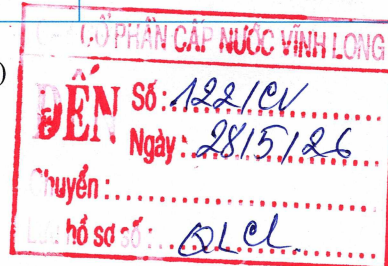 CỔ PHẦN CẤP NƯỚC VĨNH LONG
)
ĐẾN
Số: 122/CV
Ngày: 28/5/26
Chuyển:
hồ sơ số: QLCL.